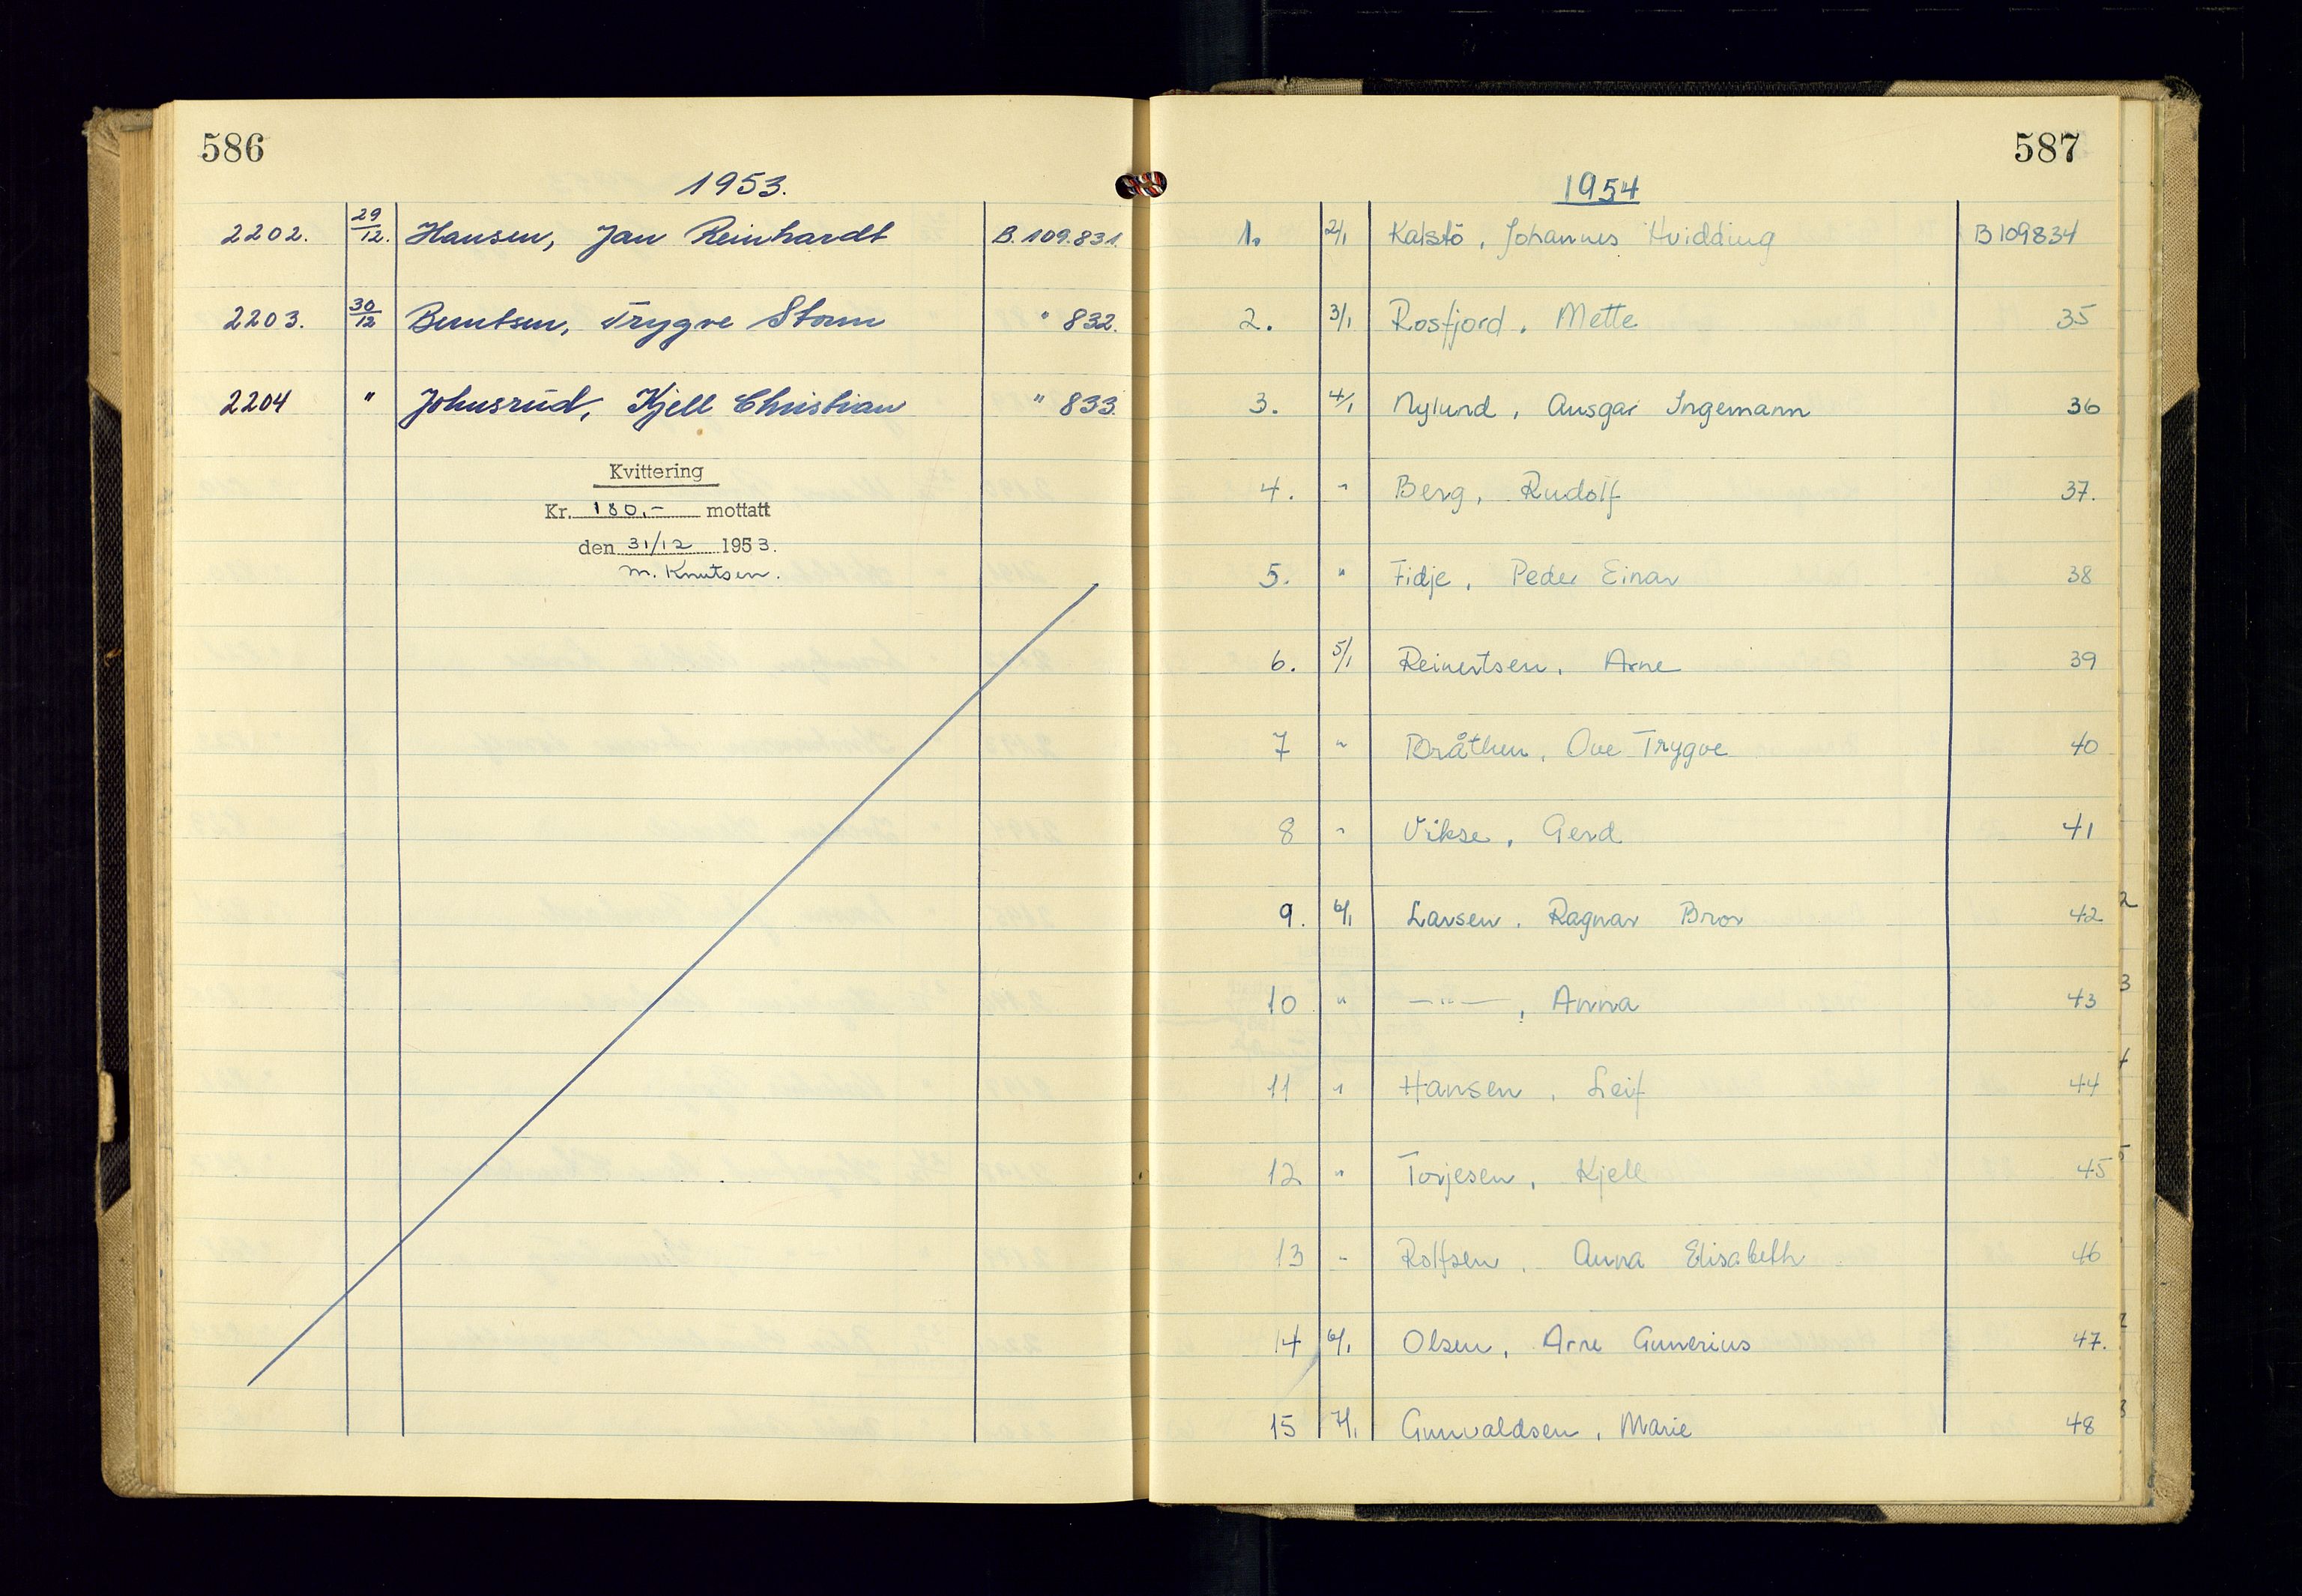 586
1953.
2202. 29/12. Hansen, Jan Reinhardt B.109.831.
2203. 30/12 Berntsen, Trygve Storm " 832.
2204 " Johnsrud, Kjell Christian " 833.
Kvittering
Kr. 180.- mottatt
den 31/12 1953.
M. Knutsen.
587
1954
1. 2/1 Kalstö, Johannes Hvidding B109834
2. 3/1 Rosfjord, Mette 35
3. 4/1 Nylund, Ansgar Ingemann 36
4. " Berg, Rudolf 37.
5. " Fidje, Peder Einar 38
6. 5/1 Reinertsen, Arne 39
7 " Bråthen, Ove Trygve 40
8 " Vikse, Gerd 41
9. 6/1 Larsen, Ragnar Bror 42
10 " —"—, Anna 43
11 " Hansen, Leif 44
12 " Torjesen, Kjell 45
13 " Rolfsen, Anna Elisabeth 46
14 6/1 Olsen, Arne Gunerius 47.
15 7/1 Gunvaldsen, Marie 48